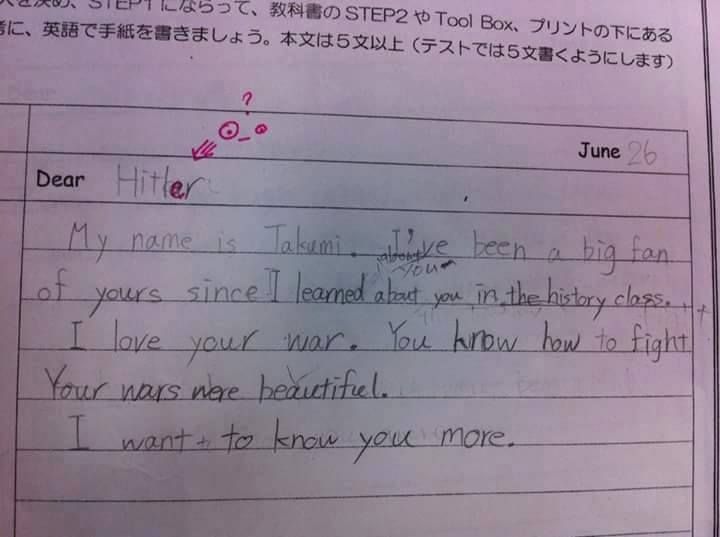 を決め、STEP1 にならって、教科書の STEP2 や Tool Box、プリントの下にある
考に、英語で手紙を書きましょう。本文は5文以上（テストでは5文書くようにします）
?
June 26
Dear Hitler
My name is Takumi. I've been a big fan
about you
of yours since I learned about you in the history class.
I love your war. You know how to fight
Your wars were beautiful.
I want to know you more.